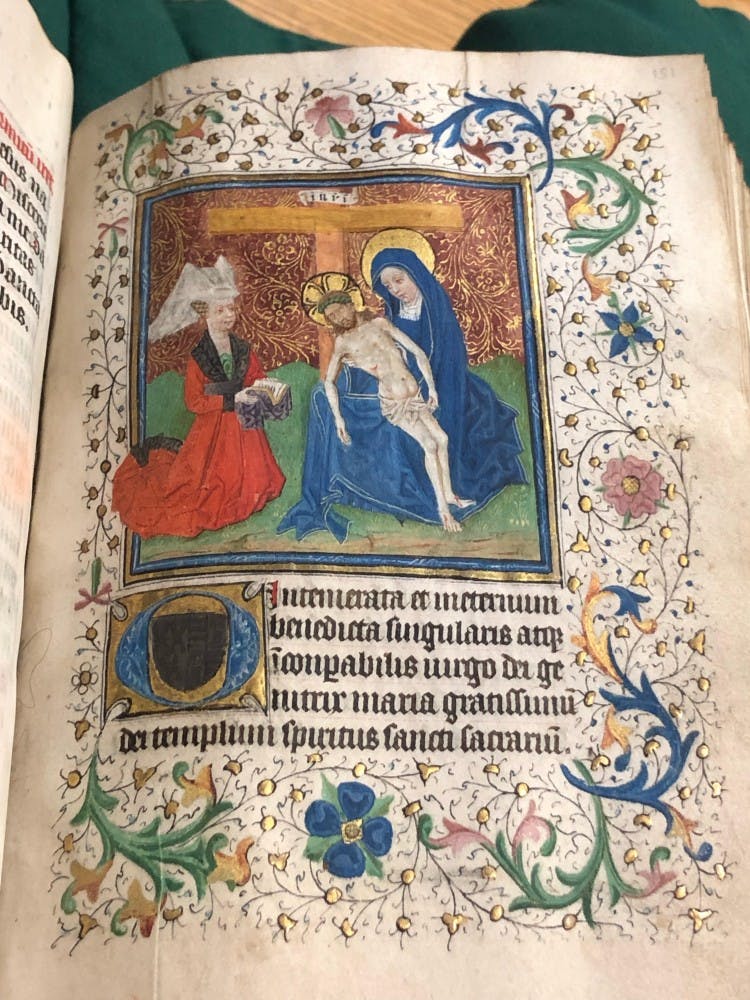 151
inri
O Intemerata et ineternum
benedicta singularis atqꝫ
īcōꝑabilis uirgo dei ge
nitrix maria gratissimū
dei templum spiritus sancti sacrariū.